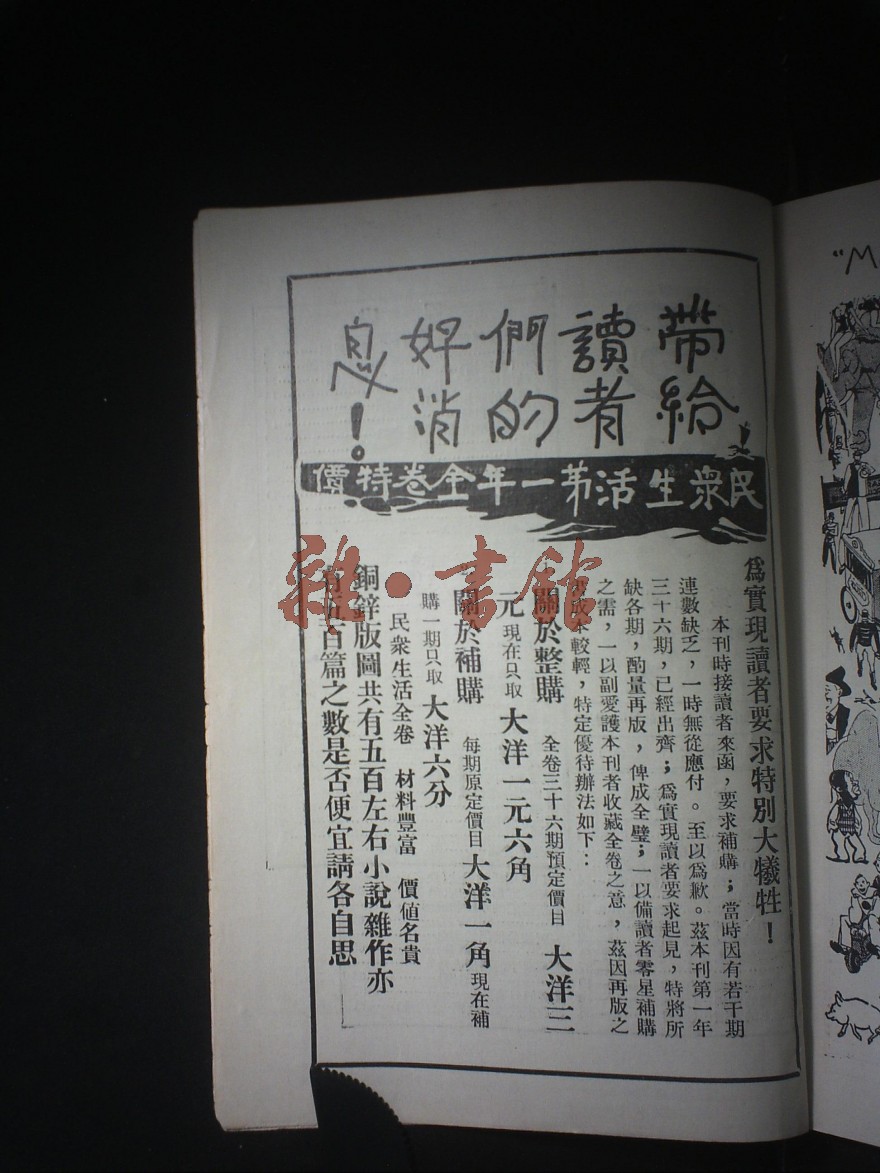 帶給
讀者
們的
好消
息！
民衆生活第一年全卷特價
為實現讀者要求特別大犧牲！
本刊時接讀者來函，要求補購；當時因有若干期
連數缺乏，一時無從應付。至以為歉。茲本刊第一年
三十六期，已經出齊；為實現讀者要求起見，特將所
缺各期，酌量再版，俾成全璧；一以備讀者零星補購
之需，一以副愛護本刊者收藏全卷之意，茲因再版之
書成本較輕，特定優待辦法如下：
關於整購 全卷三十六期預定價目 大洋三
元 現在只取 大洋一元六角
關於補購 每期原定價目 大洋一角 現在補
購一期只取 大洋六分
民衆生活全卷 材料豐富 價値名貴
銅鋅版圖共有五百左右小說雜作亦
有五百篇之數是否便宜請各自思
雜·書館
"M